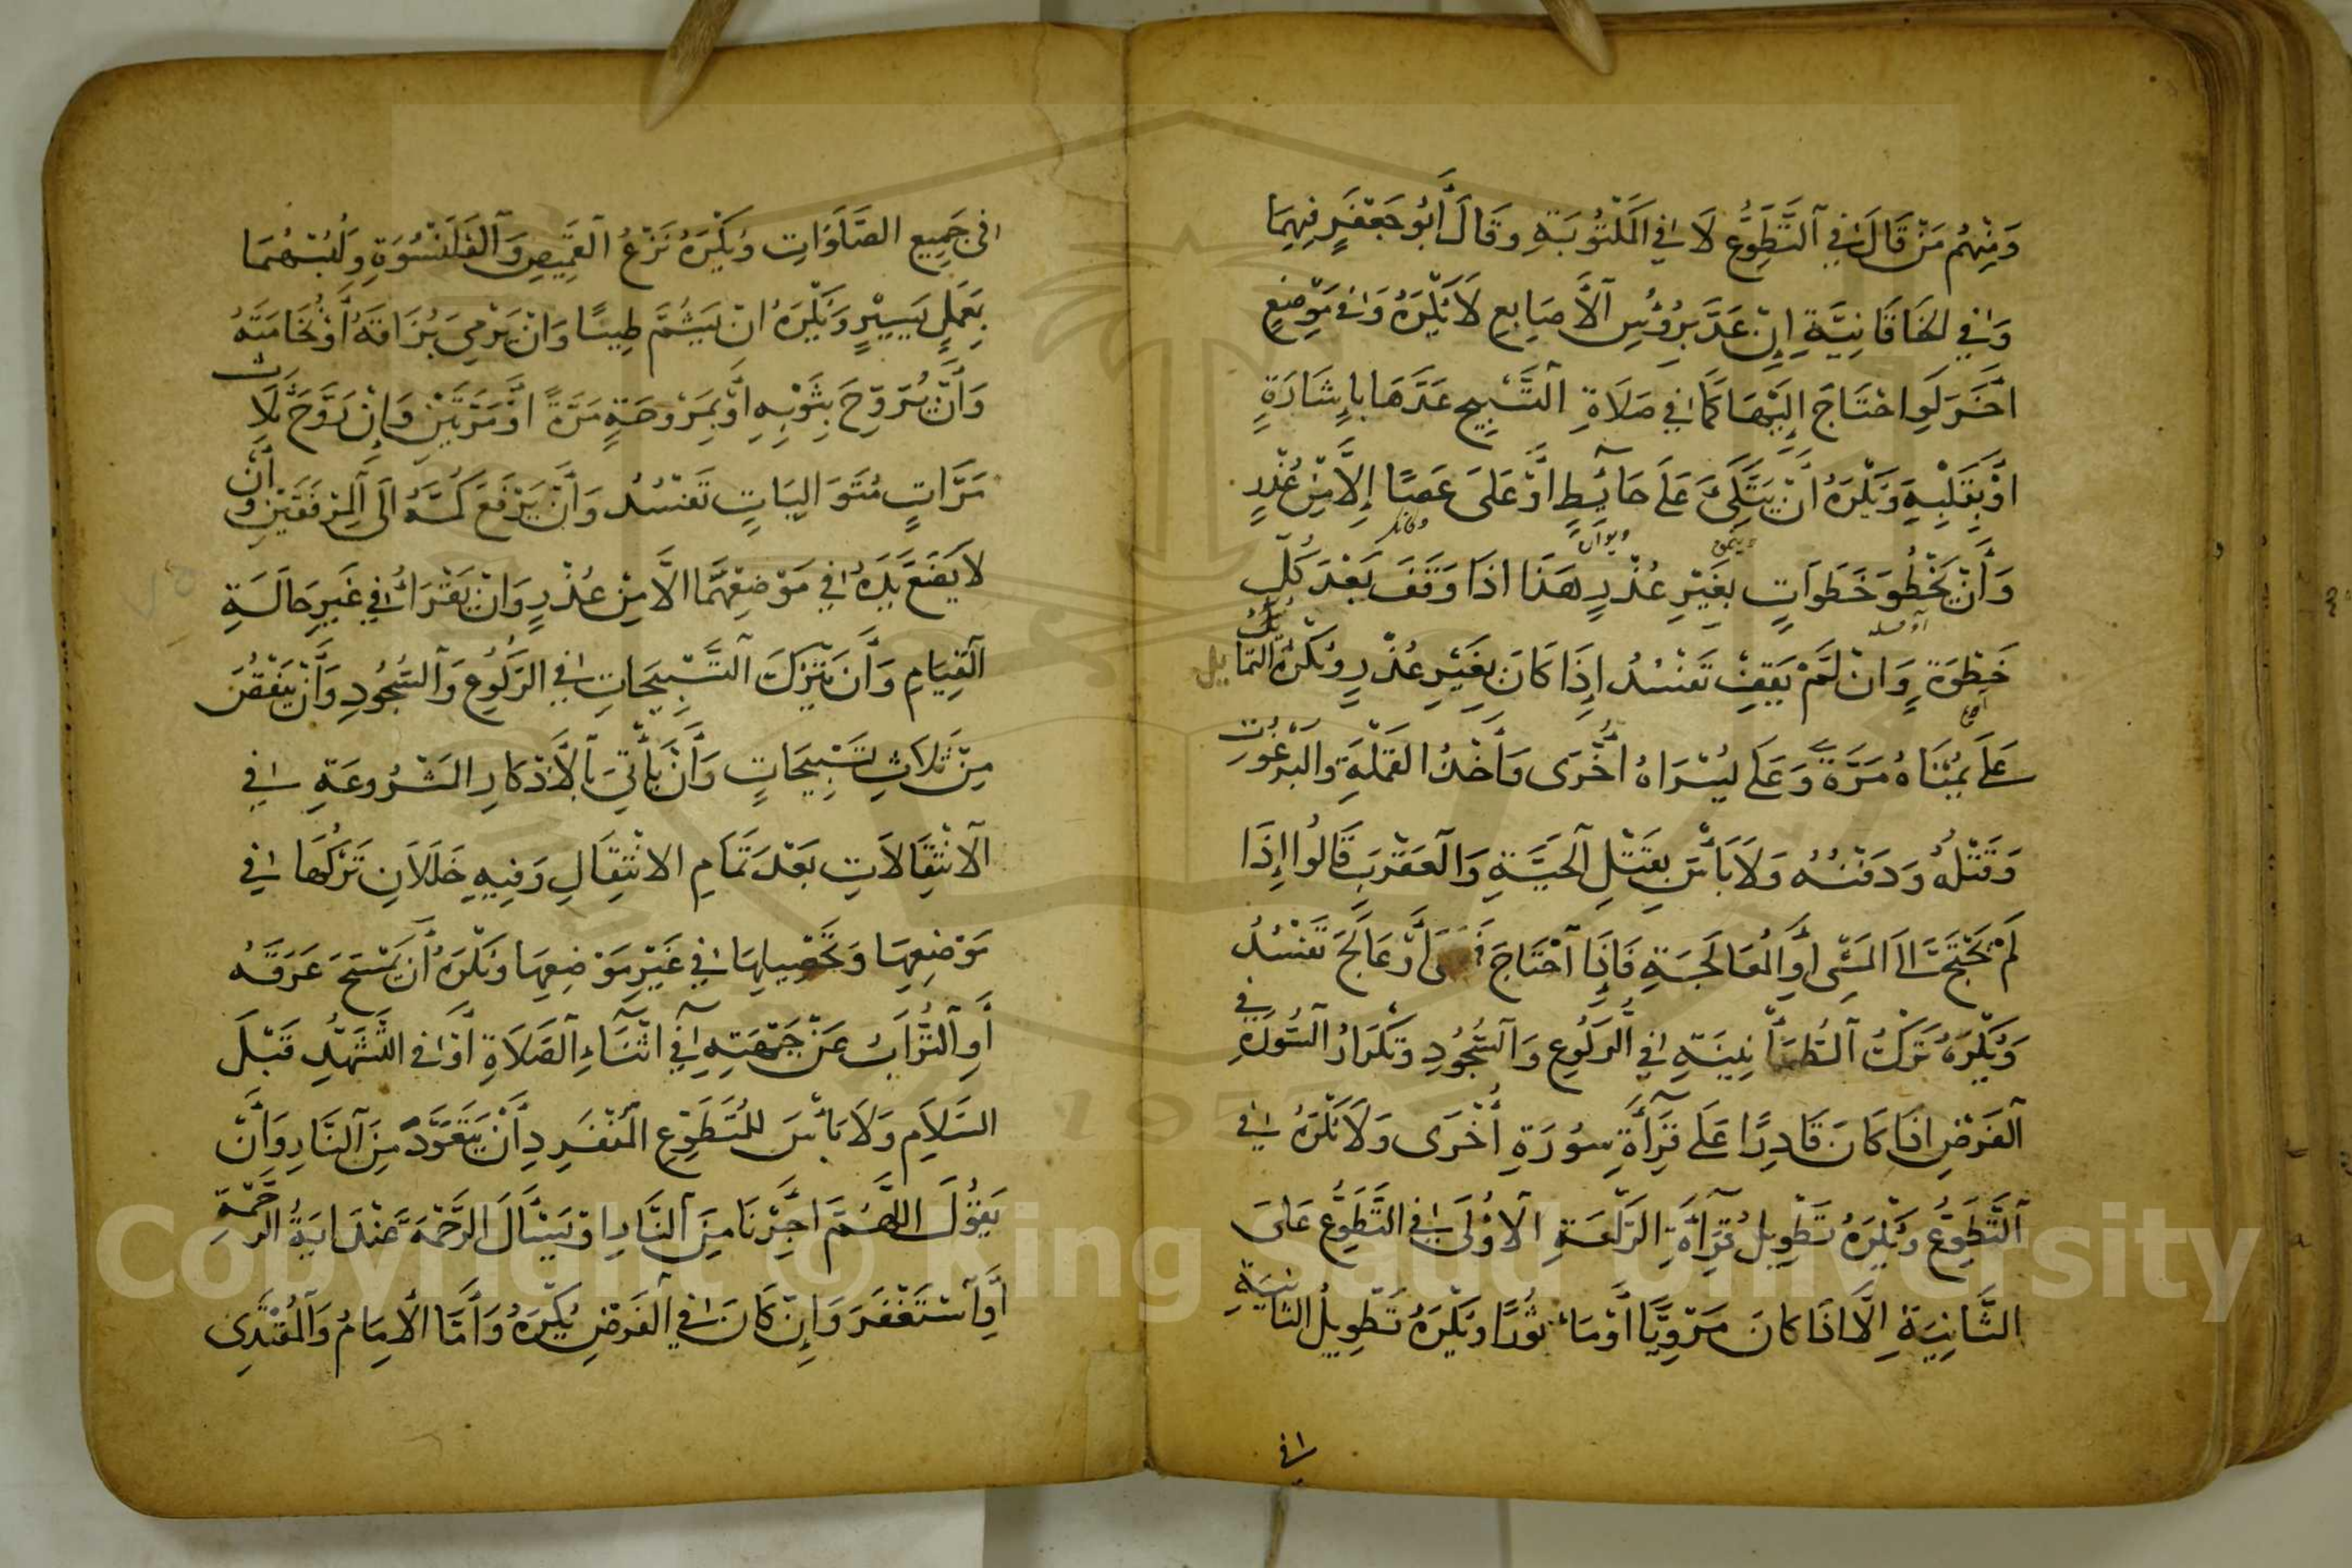 وَمِنْهُم مَنْ قَالَ فِي ٱلتَّطَوُّعِ لَا فِي المَكْتُوبَةِ وَقَالَ أَبُو جَعْفَرٍ فِيهِمَا
وَفِي الخَاقَانِيَّةِ إِنْ عَدَّ بِرُؤُسِ ٱلأَصَابِعِ لَا يُكْرَهُ وَفِي مَوْضِعٍ
أخَرَ لَوِ احْتَاجَ إِلَيْهَا كَمَا فِي صَلَاةِ التَّسْبِيحِ عَدَّهَا بِإِشَارَةٍ
أَوْ بِقَلْبِهِ وَيُكْرَهُ أَنْ يَتَّكِىَٔ عَلَى حَائِطٍ أَوْ عَلَى عَصًا إِلَّا مِنْ عُذْرٍ
وَأَنْ يَخْطُوَ خَطَوَاتٍ بِغَيْرِ عُذْرٍ هَذَا اذَا وَقَفَ بَعْدَ كُلِّ
خَطْوَةٍ وَانْ لَمْ يَقِفْ تَفْسُدُ إِذَا كَانَ بِغَيْرِ عُذْرٍ وَيُكْرَهُ التَّمَايُلُ
عَلَى يُمْنَاهُ مَرَّةً وَعَلَى يُسْرَاهُ أُخْرَى وَأَخْذُ القَمْلَةِ وَالبَرْغُوثِ
وَقَتْلُهُ وَدَفْنُهُ وَلَا بَأْسَ بِقَتْلِ ٱلحَيَّةِ وَالعَقْرَبِ قَالُوا إِذَا
لَمْ يَحْتَجْ الَى المَشْىِ أَوِ المُعَالَجَةِ فَإِذَا ٱحْتَاجَ أَوْ عَالَجَ تَفْسُدُ
وَيُكْرَهُ تَرْكُ ٱلطُّمَأْنِينَةِ فِي الرُّكُوعِ وَٱلسُّجُودِ وَتَكْرَارُ ٱلسُّورَةِ فِي
ٱلفَرْضِ اذَا كَانَ قَادِرًا عَلَى قِرَآءَةِ سُورَةٍ أُخْرَى وَلَا يُكْرَهُ فِي
ٱلتَّطَوُّعِ وَيُكْرَهُ تَطْوِيلُ قِرَآءَةِ الرَّكْعَةِ ٱلأُوْلَى فِي التَّطَوُّعِ عَلَى
الثَّانِيَةِ إِلَّا اذَا كَانَ مَرْوِيًّا أَوْ مَأْثُورًا وَيُكْرَهُ تَطْوِيلُ الثَّانِيَةِ
فِي
فِي جَمِيعِ الصَّلَوَاتِ وَيُكْرَهُ نَزْعُ القَمِيصِ وَٱلقَلَنْسُوَةِ وَلُبْسُهُمَا
بِعَمَلٍ يَسِيْرٍ وَيُكْرَهُ انْ يَشُمَّ طِيبًا وَانْ يَرْمِيَ بُزَاقَهُ أَوْ نُخَامَتَهُ
وَأَنْ يُرَوِّحَ بِثَوْبِهِ أَوْ بِمِرْوَحَةٍ مَرَّةً أَوْ مَرَّتَيْنِ وَإِنْ رَوَّحَ ثَلَاثَ
مَرَّاتٍ مُتَوَالِيَاتٍ تَفْسُدُ وَأَنْ يَرْفَعَ كُمَّهُ الَى ٱلمِرْفَقَيْنِ وَأَنْ
لَا يَضَعَ يَدَهُ فِي مَوْضِعِهِمَا الَّا مِنْ عُذْرٍ وَانْ يَقْرَأَ فِي غَيْرِ حَالَةِ
ٱلقِيَامِ وَأَنْ يَتْرُكَ ٱلتَّسْبِيحَاتِ فِي الرُّكُوعِ وَٱلسُّجُودِ وَأَنْ يَنْقُصَ
مِنْ ثَلَاثِ تَسْبِيحَاتٍ وَأَنْ يَأْتِيَ بِٱلأَذْكَارِ المَشْرُوعَةِ فِي
ٱلانْتِقَالَاتِ بَعْدَ تَمَامِ الانْتِقَالِ وَفِيهِ خَلَلَانِ تَرْكُهَا فِي
مَوْضِعِهَا وَتَحْصِيلِهَا فِي غَيْرِ مَوْضِعِهَا وَيُكْرَهُ أَنْ يَمْسَحَ عَرَقَهُ
أَوِ ٱلتُّرَابَ عَنْ جَبْهَتِهِ فِي اثْنَآءِ ٱلصَّلَاةِ أَوْ فِي التَّشَهُّدِ قَبْلَ
السَّلَامِ وَلَا بَأْسَ لِلْمُتَطَوِّعِ المُنْفَرِدِ أَنْ يَتَعَوَّذَ مِنَ ٱلنَّارِ وَأَنْ
يَقُوْلَ اللَّهُمَّ اجِرْنَا مِنَ ٱلنَّارِ اوْ يَسْأَلَ الرَّحْمَةَ عِنْدَ ايَةِ الرَّحْمَةِ
أَوِ ٱسْتَغْفَرَ وَإِنْ كَانَ فِي ٱلفَرْضِ يُكْرَهُ وَأَمَّا الأِمَامُ وَٱلمُقْتَدِى
Copyright © King Saud University